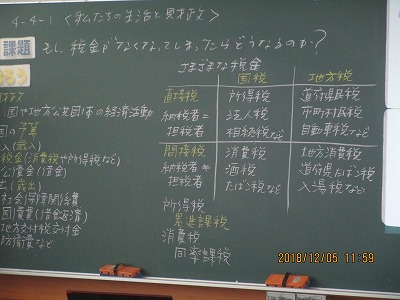 4-4-1 <私たちの生活と財政>
課題 もし、税金がなくなってしまったらどうなるのか?
さまざまな税金
国税 地方税
直接税 所得税 道府県民税
納税者= 法人税 市町村民税
担税者 相続税など 自動車税など
間接税 消費税 地方消費税
納税者≠ 酒税 道府県たばこ税
担税者 たばこ税など 入湯税など
所得税
累進課税
消費税
同率課税
財政
国や地方公共団体の経済活動
国の予算
入(歳入)
税金(消費税や所得税など)
公債金(借金)
出(歳出)
社会保障関係費
国債費(借金返済)
地方交付税交付金
防衛費など
2018/12/05 11:59